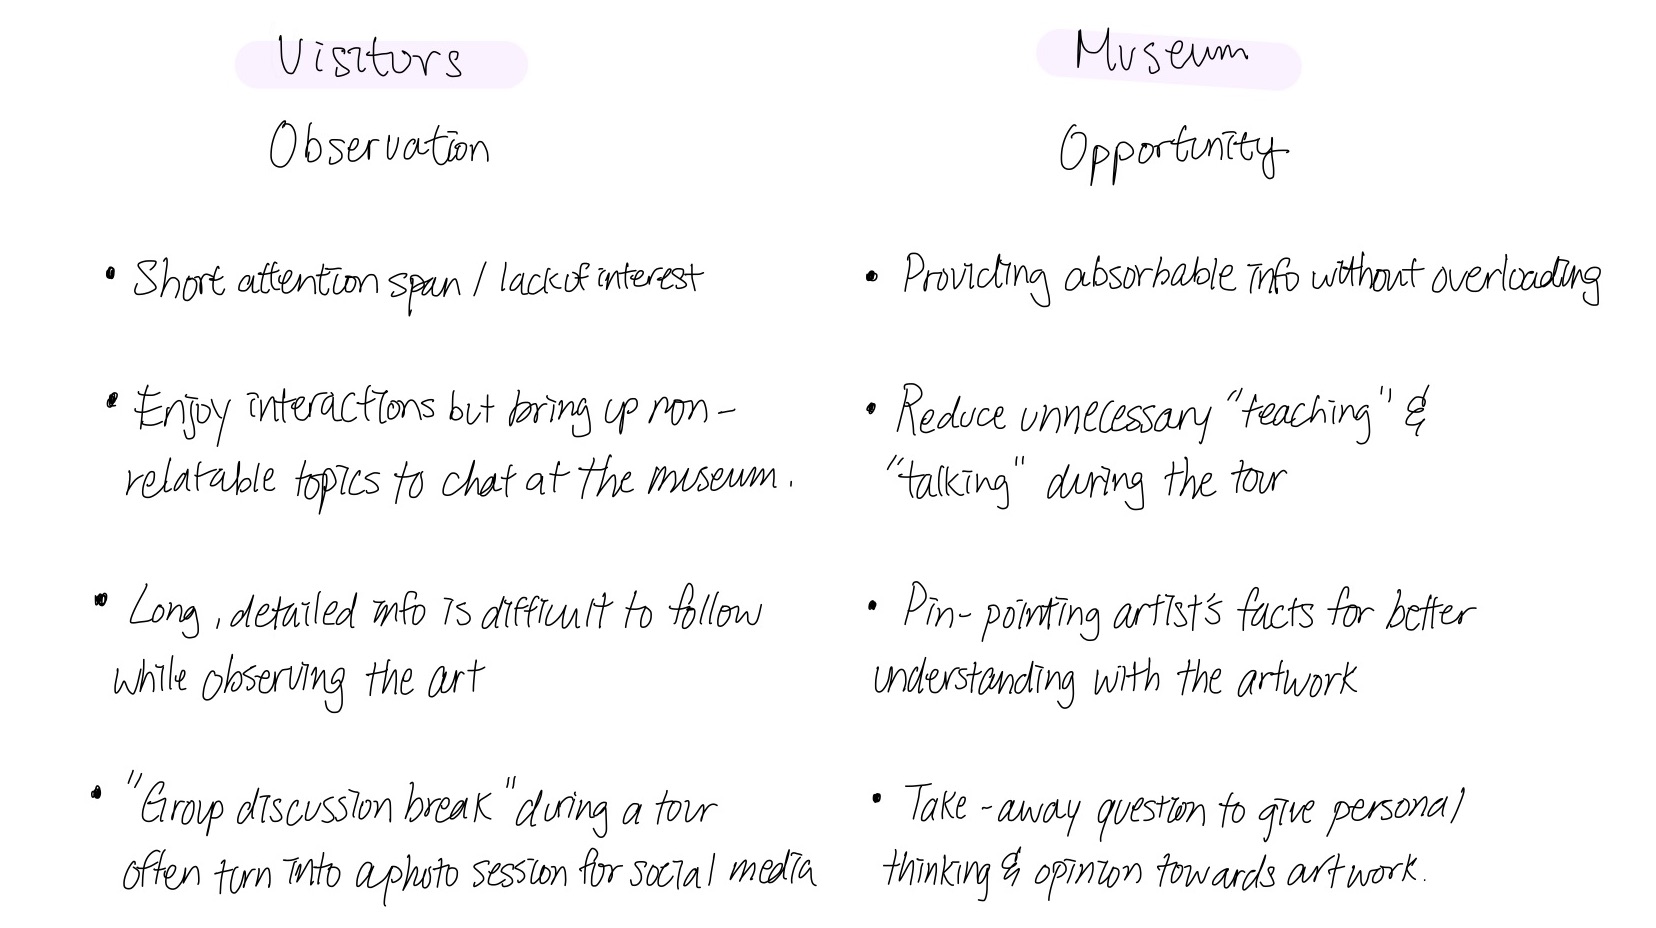 Visitors
Observation
• Short attention span / lack of interest
• Enjoy interactions but bring up non-
relatable topics to chat at the museum.
• Long, detailed info is difficult to follow
while observing the art
• "Group discussion break" during a tour
often turn into a photo session for social media
Museum
Opportunity
• Providing absorbable info without overloading
• Reduce unnecessary "teaching" &
"talking" during the tour
• Pin-pointing artist's facts for better
understanding with the artwork
• Take-away question to give personal
thinking & opinion towards artwork.